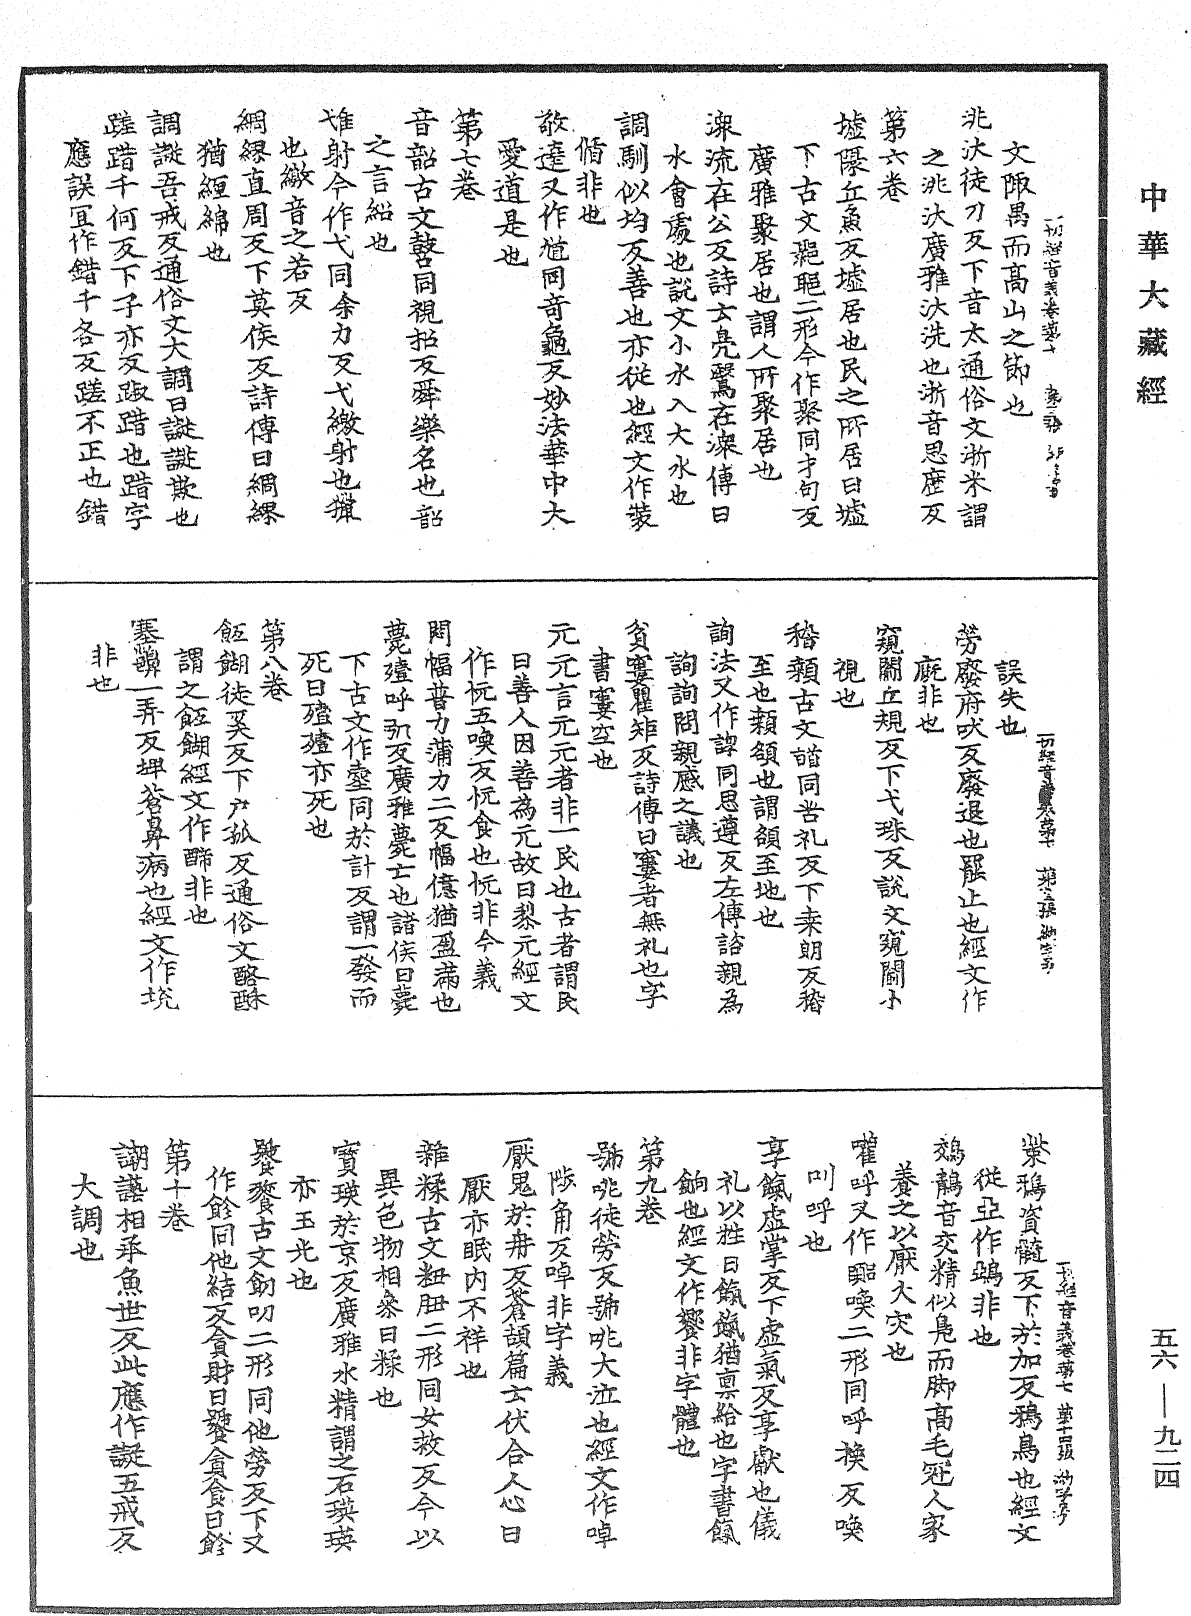 中華大藏經
文陬禺而高山之節也
洮汰徒刀反下音太通俗文浙米謂
之洮汰廣雅汰洗也浙音思歷反
第六卷
墟隰丘魚反墟居也民之所居曰墟
下古文𨛬聚二形今作聚同才句反
廣雅聚居也謂人所聚居也
潨流在公反詩云鳧鷖在潨傳曰
水會處也說文小水入大水也
調馴似均反善也亦從也經文作裝
脩非也
敬逵又作馗同奇龜反妙法華中大
愛道是也
第七卷
音韶古文磬同視招反舜樂名也韶
之言紹也
䧹射今作弋同余力反弋繳射也獵
也繳音之若反
綢繆直周反下莫侯反詩傳曰綢繆
猶纏綿也
調𧩦吾戒反通俗文大調曰𧩦𧩦欺也
蹉踖千何反下子亦反踧踖也踖字
應誤宜作錯千各反蹉不正也錯
誤失也
勞廢府吠反廢退也罷止也經文作
㾱非也
窺闚丘規反下弋珠反說文窺闚小
視也
稽顙古文𩒨同苦礼反下桒朗反稽
至也顙頟也謂頟至地也
詢法又作諄同思遵反左傳諮親為
詢詢問親慼之議也
貧寠瞿矩反詩傳曰寠者無礼也字
書寠空也
元元言元元者非一民也古者謂民
曰善人因善為元故曰黎元經文
作忨五喚反忨食也忨非今義
閇幅普力蒲力二反幅億猶盈滿也
薨殪呼肱反廣雅薨亡也諸侯曰薨
下古文作壺同於計反謂一發而
死曰殪殪亦死也
第八卷
䬫餬徒奚反下户孤反通俗文酪酥
謂之䬫餬經文作醍非也
塞齆一弄反埤蒼鼻病也經文作塕
非也
𦭘鵶資髓反下於加反鵶鳥也經文
從亞作鵶非也
鵁鶄音交精似鳧而脚高毛冠人家
養之以厭火灾也
嚾呼又作嚻喚二形同呼換反喚
叫呼也
享餼虛掌反下虛氣反享獻也儀
礼以牲曰餼餼猶稟給也字書餼
餉也經文作饗非字體也
第九卷
號咷徒勞反號咷大泣也經文作啅
陟角反啅非字義
厭鬼於冉反蒼頡篇云伏合人心曰
厭亦眠內不祥也
雜糅古文粈䏔二形同女救反今以
異色物相叅曰糅也
寶瑛於京反廣雅水精謂之石瑛瑛
亦玉光也
饕餮古文叨叨二形同他勞反下又
作飻同他結反貪財曰饕貪食曰飻
第十卷
謿譺相承魚世反此應作譺五戒反
大調也
五六—九二四